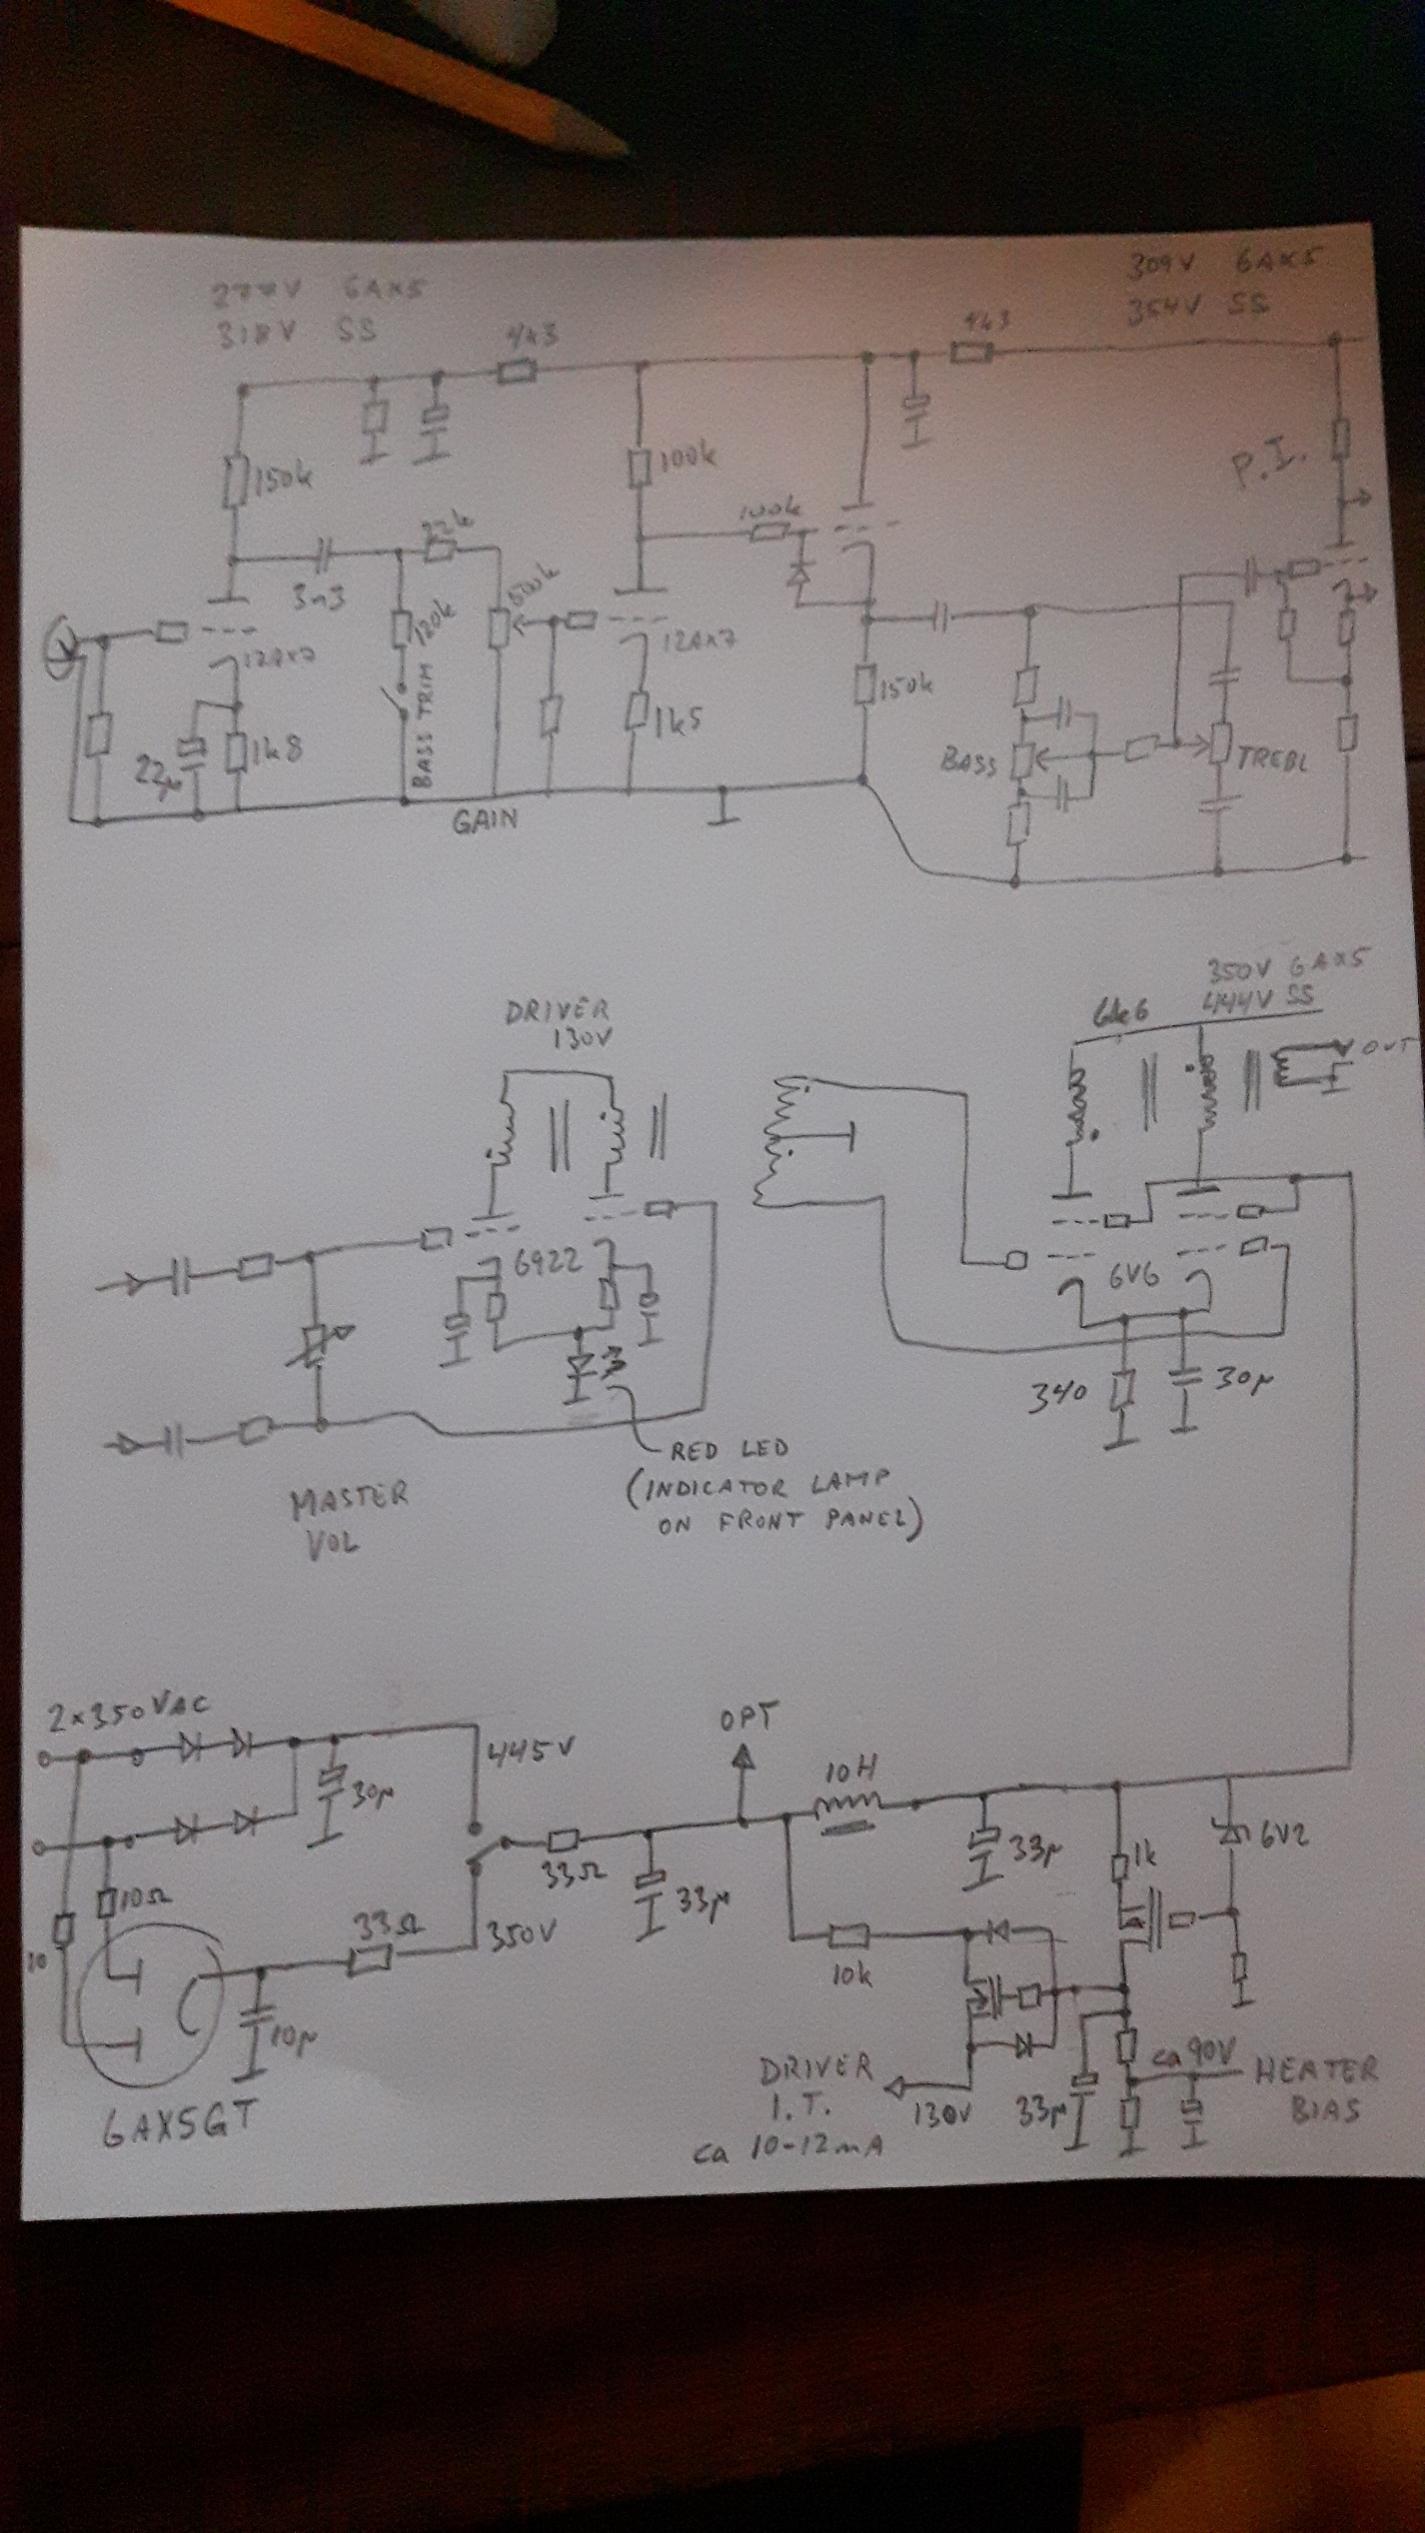 277V 6AX5
318V SS
4k3
309V 6AX5
354V SS
4k3
150k
100k
P.I.
100k
22k
3n3
500k
120k
12AX7
12AX7
BASS TRIM
1k8
22µ
1k5
150k
BASS
TREBL
GAIN
DRIVER
130V
350V 6AX5
444V SS
OUT
6922
6V6
340
30µ
RED LED
(INDICATOR LAMP
ON FRONT PANEL)
MASTER
VOL
2x350VAC
445V
30µ
OPT
10H
33Ω
33µ
33µ
1k
6V2
10Ω
10
33Ω
350V
10k
10µ
6AX5GT
DRIVER
I.T.
ca 10-12mA
130V
33µ
ca 90V
HEATER
BIAS